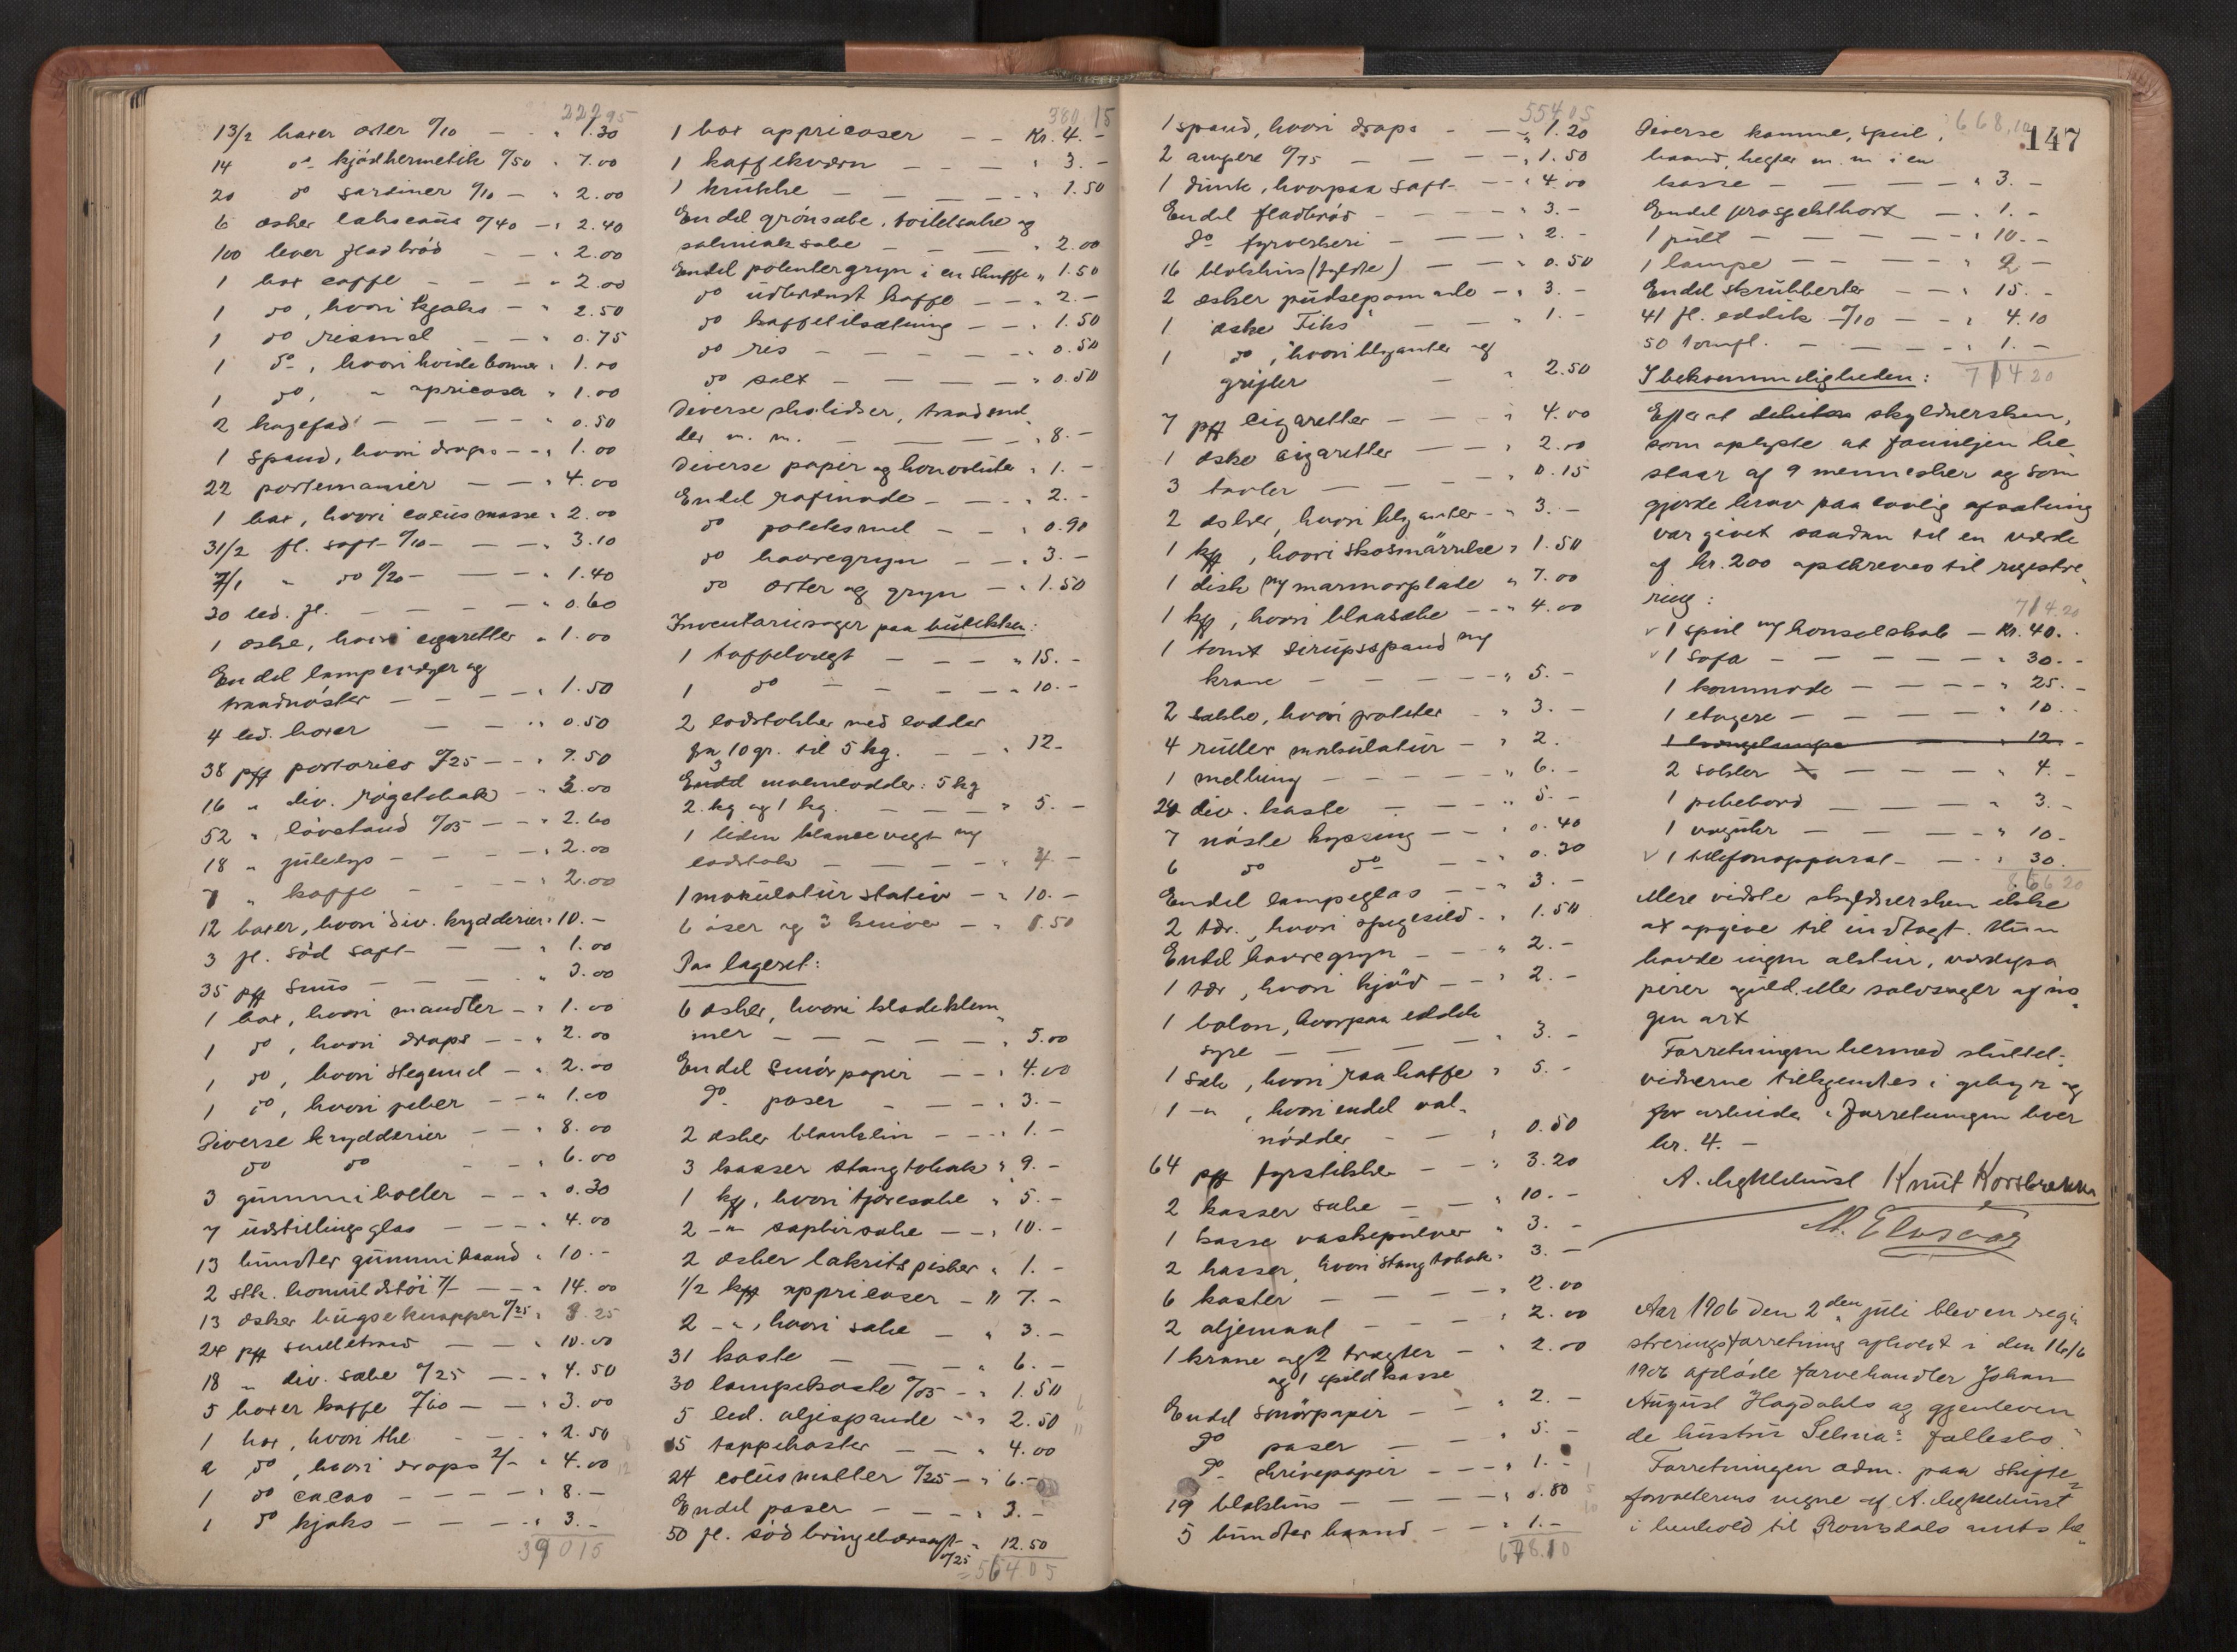 222.95
13/2 boxer oster %10 — " 1.30
14 do kjödhermetik %50 " 7.00
20 do sardiner %10 — " 2.00
6 æsker labscaus %40 — " 2.40
100 lever fladbröd — " 2.00
1 box caffe — " 2.00
1 do, hvori kjaks — " 2.50
1 do rismel — " 0.75
1 do, hvori hvide bönner " 1.00
1 do, " apricoser " 1.00
2 kagefad — " 0.50
1 spand, hvori drops — " 1.00
22 portemanier — " 4.00
1 box, hvori cocusmasse " 2.00
31/2 fl. saft %10 — " 3.10
7/1 " do %20 — " 1.40
30 led. fl. — " 0.60
1 æske, hvori cigaretter " 1.00
Endel lampevæger og
traadnöster — " 1.50
4 led. boxer — " 0.50
38 pk portorico %25 — " 7.50
16 " div. rögetobak — " 3.00
52 " lövetand %05 — " 2.60
18 " julelys — " 2.00
7 " kaffe — " 2.00
12 boxer, hvori div. krydderier " 10.–
3 fl. söd saft — " 1.00
35 pk snus — " 3.00
1 box, hvori mandler — " 1.00
1 do, hvori drops — " 2.00
1 do, hvori stegemel — " 2.00
1 do, hvori peber — " 1.00
Diverse krydderier — " 8.00
do do — " 6.00
3 gummiboller — " 0.30
7 udstillingsglas — " 4.00
13 bundter gummibaand " 10.–
2 stk. bomuldstöi 7/– — " 14.00
13 æsker bugseknapper %25 " 3.25
24 pk snelletraad — " 10.00
18 " div. sæbe %25 — " 4.50
5 boxer kaffe %60 — " 3.00
1 box, hvori the — " 2.50
2 do, hvori drops 2/– " 4.00
1 do cacao — " 8.–
1 do kjaks — " 3.–
39015
380.15
1 box appricoser — Kr. 4.–
1 kaffekværn — " 3.–
1 krukke — " 1.50
Endel grönsæbe, toiletsæbe og
salmiaksæbe — " 2.00
Endel polentergryn i en skuffe " 1.50
do udbrændt kaffe — " 2.–
do kaffetilsætning — " 1.50
do ris — " 0.50
do salt — " 0.50
Diverse skolidser, traadsnel
der m. m. — " 8.–
Diverse papir og konvolutter " 1.–
Endel rafinade — " 2.–
do potetesmel — " 0.90
do havregryn — " 3.–
do erter og gryn — " 1.50
Inventariesager paa butikken:
1 taffelvægt — " 15.–
1 do — " 10.–
2 lodstokker med lodder
fra 10 gr. til 5 kg. — " 12–
3 malmlodder: 5 kg
2. kg og 1 kg. — " 5.–
1 liden balancevegt m/
lodstok — " 4–
1 makulatur stativ — " 10.–
6 öser og 3 knive — " 1.50
Paa lageret:
6 æsker, hvori klædeklem
mer — " 5.00
Endel smörpapir — " 4.00
Do. poser — " 3.–
2 æsker blanklin — " 1.–
3 kasser stangtobak " 9.–
1 kg, hvori tjæresæbe " 5.–
2 –"– saphirsæbe — " 10.–
2 æsker lakritspisker " 1.–
1/2 kg appricoser — " 7.–
2 –"–, hvori sæbe — " 3.–
31 koste — " 6.–
30 lampekoste %05 — " 1.50
5 led. oljespande — " 2.50
15 toppekoster — " 4.00
24 cocusmatter %25 — " 6.–
Endel poser — " 3.–
50 fl. söd bringebærsaft
%25 " 12.50
= 56405
554.05
1 spand, hvori drops — " 1.20
2 ampere %75 — " 1.50
1 dunk, hvorpaa saft — " 4.00
Endel fladbröd — " 3.–
Do fyrverkeri — " 2.–
16 blækhus (fyldte) — " 0.50
2 æsker pudsepomade — " 3.–
1 æske "Fiks" — " 1.–
1 do, hvori blyanter og
grifler — " 2.50
7 pk cigaretter — " 4.00
1 æske cigaretter — " 2.00
3 tavler — " 0.15
2 æsker, hvori blyanter — " 3.–
1 kg, hvori skosmörrelse " 1.50
1 disk m/ marmorplade " 7.00
1 kg, hvori blaasæbe — " 4.00
1 tomt sirupsspand m/
krane — " 5.–
2 sække, hvori poteter " 3.–
4 ruller makulatur — " 2.
1 melbing — " 6.–
24 div. kaste — " 5.–
7 nöste hyssing — " 0.40
6 do do — " 0.30
Endel lampeglas — " 3.–
2 tdr., hvori spegesild " 1.50
Endel havregryn — " 2.–
1 tdr, hvori kjöd — " 2.–
1 balon, hvorpaa eddik
syre — " 3.–
1 sæk, hvori raa kaffe " 5.–
1 –"–, hvori endel val
nödder — " 0.50
64 pk fyrstikker — " 3.20
2 kasser sæbe — " 10.–
1 kasse vaskepulver " 3.–
2 kasser, hvori stangtobak " 3.–
6 koster — " 2.00
2 oljemaal — " 2.00
1 krane og 2 tragter — " 2.00
og 1 spildkasse
Endel smörpapir — " 2.–
Do poser — " 5.–
Do skrivepapir — " 1.–
19 blækhus — " 0.80
5 bundter baand — " 1.–
678.10
668,10
147
Diverse kamme, speil,
baand, hegter m. m. i en
kasse — " 3.–
Endel prospektkort — " 1.–
1 pult — " 10.–
1 lampe — " 2–
Endel skrubberter — " 15.–
41 fl. eddik %10 — " 4.10
50 tomfl. — " 1.–
I bekvemmeligheden: 71420
Efter at skyldnersken,
som oplyste at familjen be
staar af 9 mennesker og som
gjorde krav paa lovlig afsætning
var givet saadan til en værdi
af kr. 200 opskreves til registre
ring:
714.20
✓ 1 speil m/ konsolskab — Kr. 40.
✓ 1 sofa — " 30.–
1 kommode — " 25.–
1 etagere — " 10.–
1 hængelampe — " 12.–
2 stoler — " 4.–
1 pibebord — " 3.–
1 væguhr — " 10–
✓ 1 telefonapparat — " 30.
86620
Mere vidste skyldnersken ikke
at opgive til indtægt. Hun
havde ingen aktier, værdipa
pirer, guld eller sølvsager af no
gen art
Forretningen hermed sluttet.
Vidnerne tilkjendtes i gebyr og
for arbeide i forretningen hver
kr. 4.–
Knut Korsbrekke
Aar 1906 den 2den juli blev en regi
streringsforretning afholdt i den 16/6
1906 afdöde farvehandler Johan
August Hagdahls og gjenleven
de hustru Selma's fællesbo.
Forretningen adm. paa skifte
forvalterens vegne af A.
i henhold til Romsdals amts be